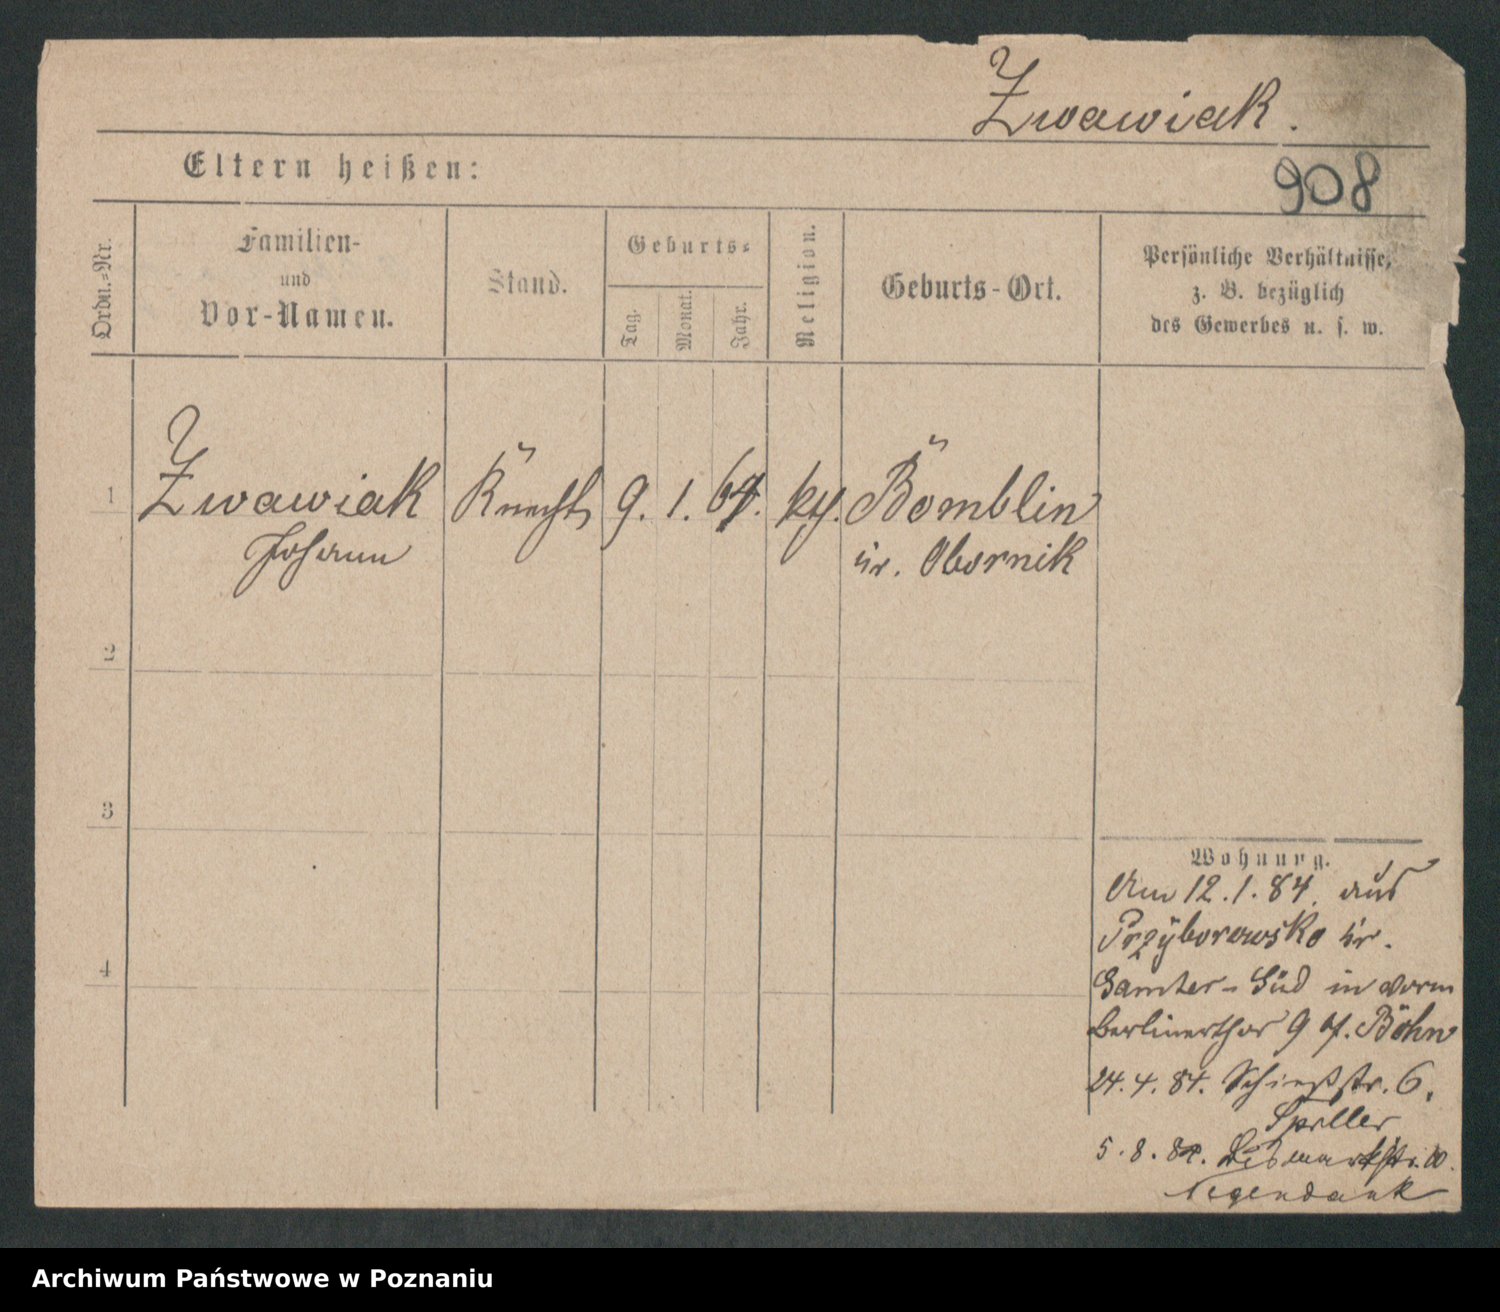 Zwawiak.
Eltern heißen:
908
Ordn.-Nr.
Familien-
und
Vor-Namen.
Stand.
Geburts-
Tag.
Monat.
Jahr.
Religion.
Geburts-Ort.
Persönliche Verhältnisse,
z. B. bezüglich
des Gewerbes u. s. w.
1
Zwawiak Knecht 9. 1. 64. kth. Bömblin
Johann Kr. Obornik
2
3
4
Wohnung.
Am 12.1.84. aus
Przÿborowsko Kr.
Samter-Süd in vorm
Berlinerthor 9 bf. Böhn
24.4.84. Schießstr. 6.
Speller
5.8.84. Bismarkstr. 10.
Negendank